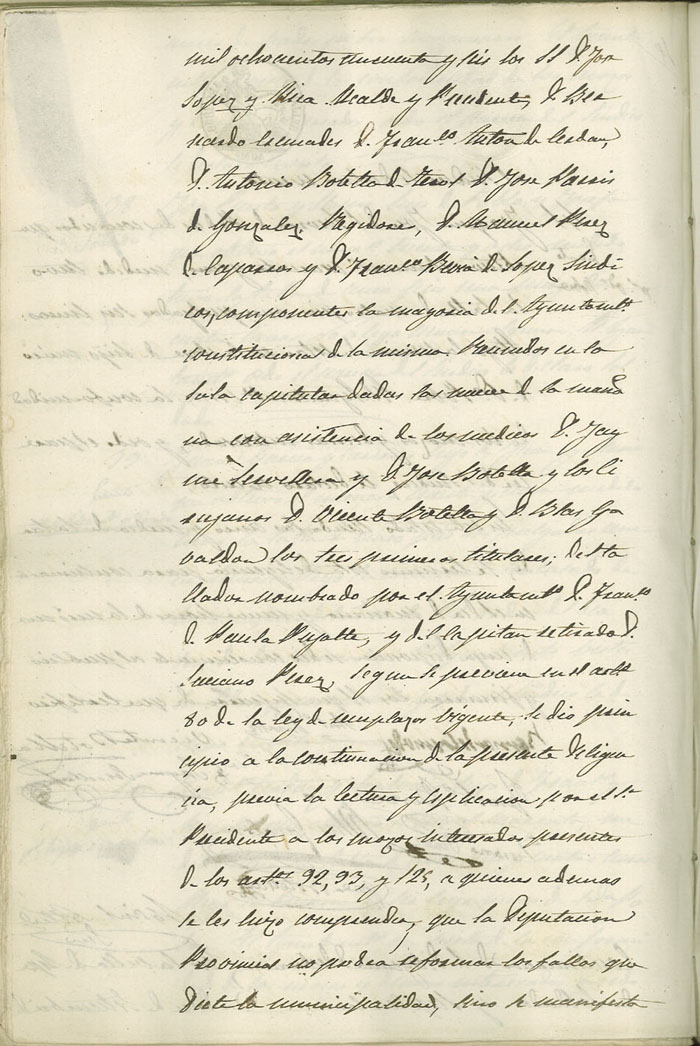 mil ochocientos cincuenta y seis los SS D. Jose
Lopez y Mira Alcalde y Presidente, D. Ber
nardo D. Franco. Anton de
D. Antonio Botella de D. Jose
de Gonzalez, Regidores, D. Manuel Perez
de y D. Franco. de Lopez Sindi
cos, componentes la mayoria del Ayuntamto.
constitucional de la misma. Reunidos en la
Sala capitular dadas las nueve de la maña
na con asistencia de los medicos D. Jay
me y D. Jose Botella y los Ci
rujanos D. Vicente Botella y D. Blas Ga
valdon los tres primeros titulares; de
llador nombrado por el Ayuntamto. D. Franco.
de Paula Pujalte, y del Capitan retirado D.
Luciano Perez, segun se previene en el arto.
80 de la ley de remplazos vigente, se dio prin
cipio a la continuacion de la presente diligen
cia, previa la lectura y esplicacion por el Sr.
Presidente a los mozos interesados presentes
de los artos. 92, 93, y 125, a quienes ademas
se les hizo comprender, que la Diputacion
Provincial no podra reformar los fallos que
dicte la municipalidad, sino se manifesta